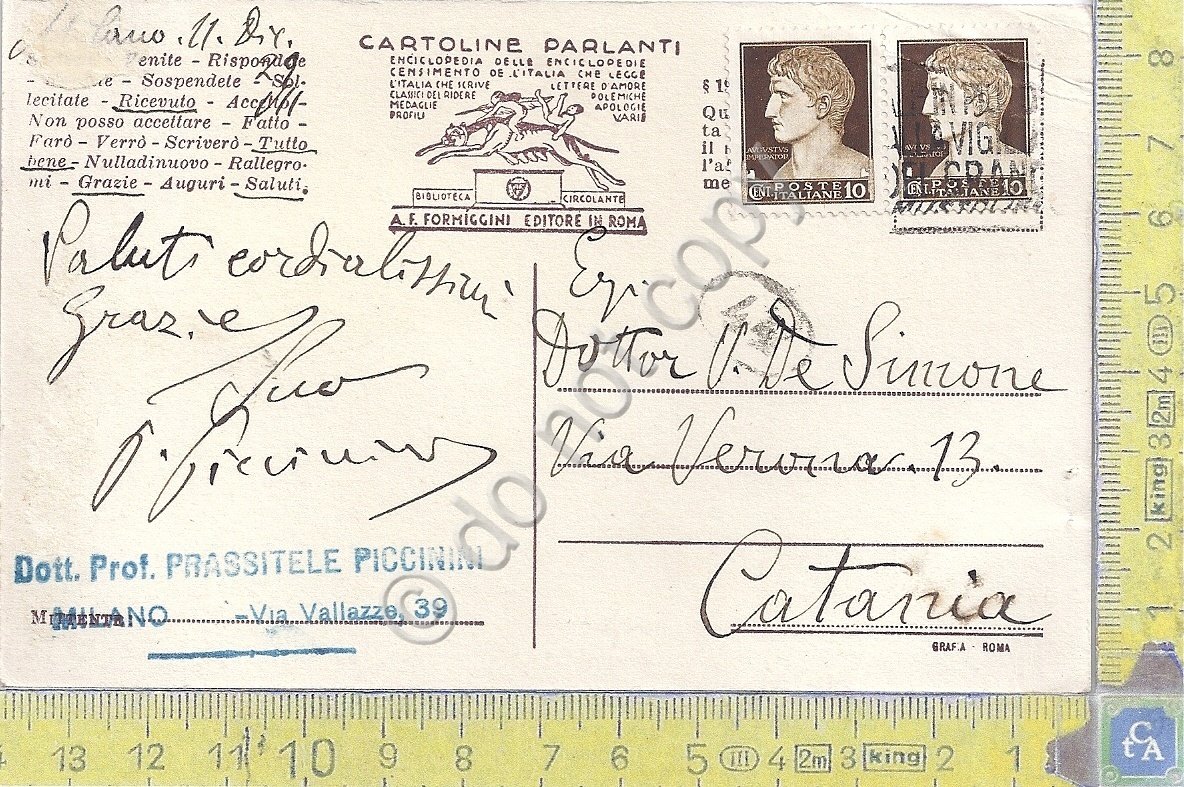 Milano. 11. Dic.
29
Venite - Rispondete
- Sospendete - Sol-
lecitate - Ricevuto - Accetto -
Non posso accettare - Fatto -
Farò - Verrò - Scriverò - Tutto
bene - Nulladinuovo - Rallegro-
mi - Grazie - Auguri - Saluti.
CARTOLINE PARLANTI
ENCICLOPEDIA DELLE ENCICLOPEDIE
CENSIMENTO DE L'ITALIA CHE LEGGE
L'ITALIA CHE SCRIVE LETTERE D'AMORE
CLASSICI DEL RIDERE POLEMICHE
MEDAGLIE APOLOGIE
PROFILI VARIE
BIBLIOTECA CIRCOLANTE
A. F. FORMIGGINI EDITORE IN ROMA
§ 1
Qu
ta
il
l'a
me
AUGUSTUS
IMPERATOR
CENT. POSTE
ITALIANE 10
CENT. POSTE
ITALIANE 10
Saluti cordialissimi
Grazie
Suo
P. Piccinini
Dott. Prof. PRASSITELE PICCININI
MILANO - Via Vallazze, 39
MITTENTE:
Egr.
Dottor V. De Simone
Via Verona. 13.
Catania
GRAF.A - ROMA
© do not copy
8
7
6
5
4
2m
3
king
2
1
13
12
11
10
9
8
7
6
5
4
2m
3
king
2
1
tCA